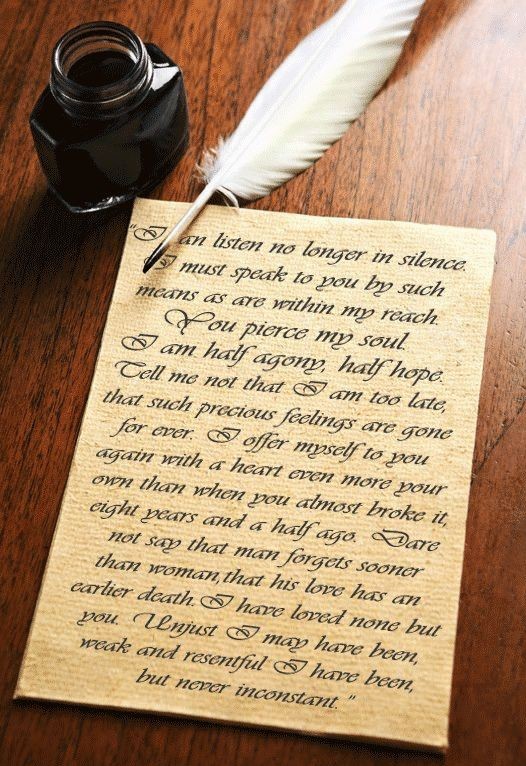 "I an listen no longer in silence.
I must speak to you by such
means as are within my reach.
You pierce my soul.
I am half agony, half hope.
Tell me not that I am too late,
that such precious feelings are gone
for ever. I offer myself to you
again with a heart even more your
own than when you almost broke it,
eight years and a half ago. Dare
not say that man forgets sooner
than woman, that his love has an
earlier death. I have loved none but
you. Unjust I may have been,
weak and resentful I have been,
but never inconstant."